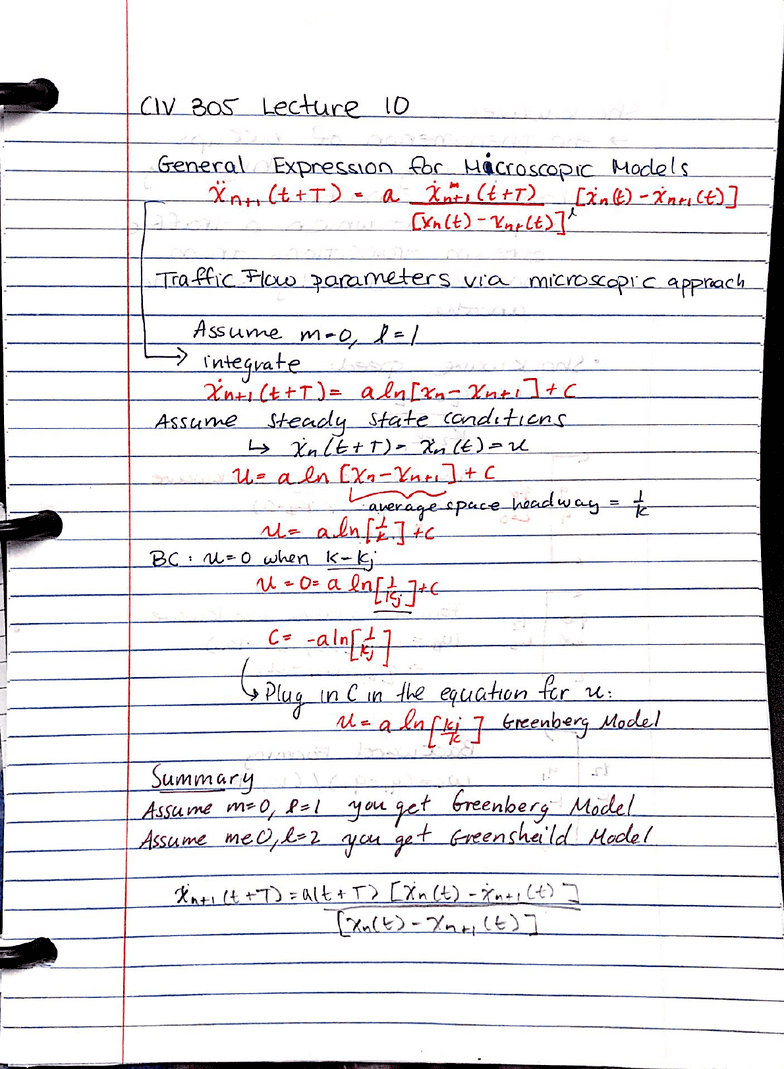 CIV 305 Lecture 10
General Expression for Microscopic Models
ẍn+1(t+T) = a ẋᵐn+1(t+T) / [xn(t)-xn+1(t)]ˡ [ẋn(t)-ẋn+1(t)]
Traffic Flow parameters via microscopic apprach
Assume m=0, l=1
→ integrate
ẋn+1(t+T) = a ln[xn-xn+1] + C
Assume steady state conditions
↳ ẋn(t+T) = ẋn(t) = u
u = a ln [xn-xn+1] + C
average space headway = 1/k
u = a ln[1/k] + C
BC: u=0 when k-kj
u = 0 = a ln[1/kj] + C
C = -a ln[1/kj]
↳ Plug in C in the equation for u:
u = a ln[kj/k] Greenberg Model
Summary
Assume m=0, l=1 you get Greenberg Model
Assume m=0, l=2 you get Greensheild Model
ẋn+1(t+T) = a(t+T) [ẋn(t)-ẋn+1(t)] / [xn(t)-xn+1(t)]